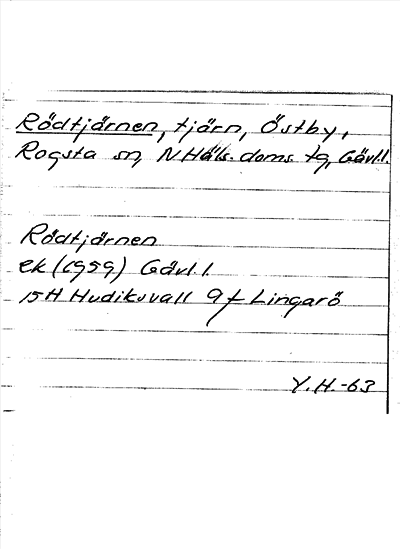 Rödtjärnen, tjärn, Östby,
Rogsta sn, N Häls. doms. tg, Gävl.l.
Rödtjärnen
ek (1959) Gävl.l.
15H Hudiksvall 9f Lingarö
Y.H.-63